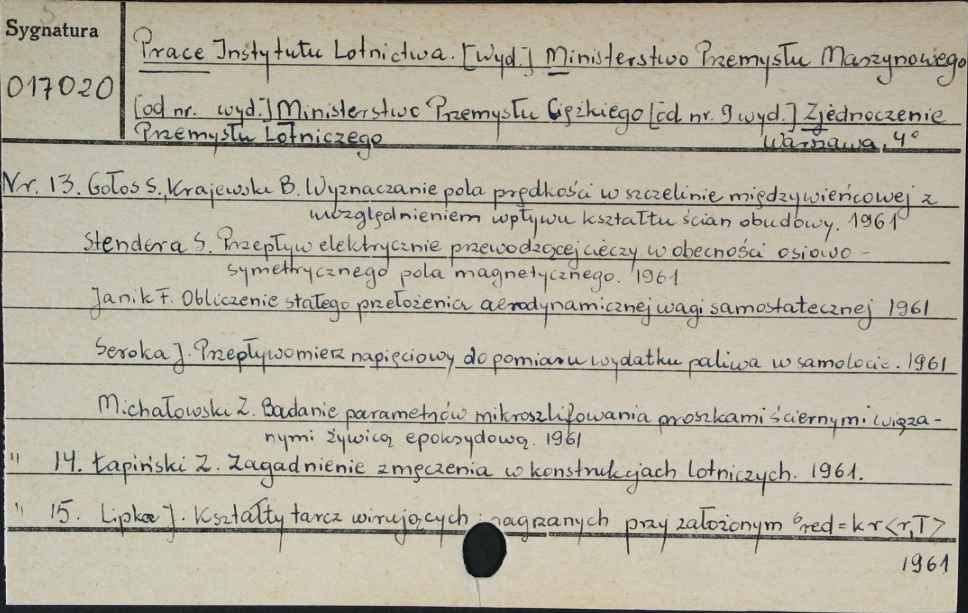 Sygnatura
017020
Prace Instytutu Lotnictwa. [Wyd.] Ministerstwo Przemysłu Maszynowego
[od nr. wyd.] Ministerstwo Przemysłu Ciężkiego [od nr. 9 wyd.] Zjednoczenie
Przemysłu Lotniczego Warszawa, 4°
Nr. 13. Gołos S., Krajewski B. Wyznaczanie pola prędkości w szczelinie międzywieńcowej z
uwzględnieniem wpływu kształtu ścian obudowy. 1961
Stendera S. Przepływ elektrycznie przewodzącej cieczy w obecności osiowo-
symetrycznego pola magnetycznego. 1961
Janik F. Obliczenie stałego przełożenia aerodynamicznej wagi samostatecznej 1961
Seroka J. Przepływomierz napięciowy do pomiaru wydatku paliwa w samolocie. 1961
Michałowski Z. Badanie parametrów mikroszlifowania proszkami ściernymi wiąza-
nymi żywicą epoksydową. 1961
" 14. Łapiński Z. Zagadnienie zmęczenia w konstrukcjach lotniczych. 1961.
" 15. Lipka J. Kształty tarcz wirujących i nagrzanych przy założonym σred = k r <r,T>
1961